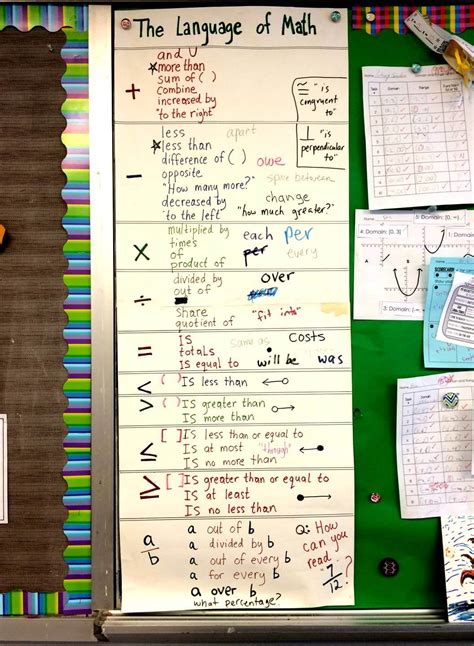 The Language of Math
+
and U
*more than
sum of ( )
combine
increased by
"to the right"
≅ "is congruent to"
⊥ "is perpendicular to"
−
less apart
*less than
difference of ( ) owe
opposite
"How many more?" space between
decreased by change
"to the left" "how much greater?"
×
multiplied by each per
times
of per every
product of
÷
divided by over
out of
share "fit into"
quotient of
=
Is same as costs
totals
Is equal to will be was
< ( ) Is less than
> ( ) Is greater than
Is more than
≤ [ ] Is less than or equal to
Is at most "through"
Is no more than
≥ [ ] Is greater than or equal to
Is at least
Is no less than
a/b
a out of b
a divided by b
a out of every b
a for every b
a over b
what percentage?
Q: How can you read 7/12?
Name
Task Domain Range
4: Domain: [0, 3]
5: Domain: (-∞, ∞)
3: Domain: (-∞, ∞)
SCORECARD
Name